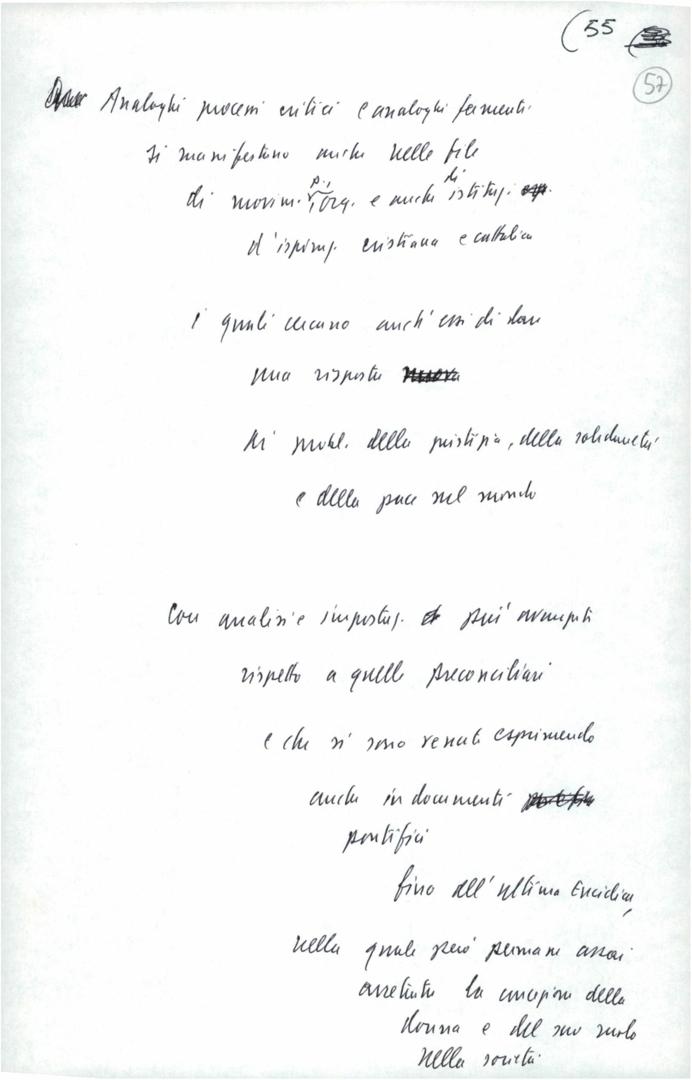 (55
57
Analoghi processi critici e analoghi fermenti
si manifestano anche nelle file
di movim. p., org. e anche di istituz.
d'ispiraz. cristiana e cattolica
i quali cercano anch'essi di dare
una risposta nuova
ai probl. della giustizia, della solidarietà
e della pace nel mondo
Con analisi e impostaz. più avanzati
rispetto a quelle preconciliari
e che si sono venuti esprimendo
anche in documenti
pontifici
fino all'ultima Enciclica,
nella quale però permane assai
arretrata la concezione della
donna e del suo ruolo
nella società